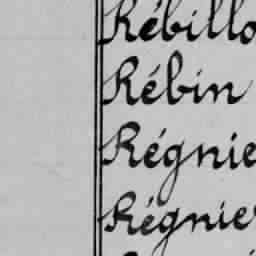 Rébillo
Rébin
Régnie
Régnier